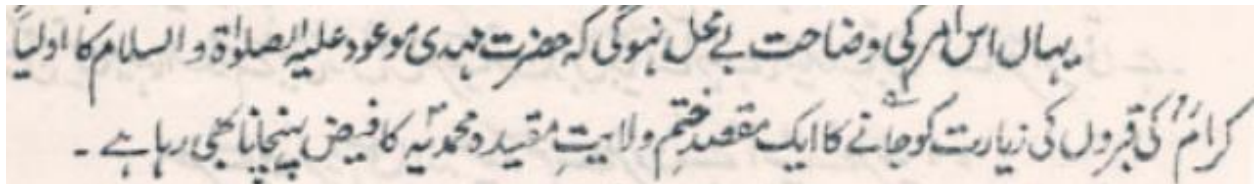 یہاں اس امر کی وضاحت بے محل نہوگی کہ حضرت مہدی موعود علیہ الصلوٰۃ و السلام کا اولیاً
کرامؒ کی قبروں کی زیارت کو جانے کا ایک مقصد ختم ولایتِ مقیدہ محمدیہؐ کا فیض پہنچانا بھی رہا ہے ۔